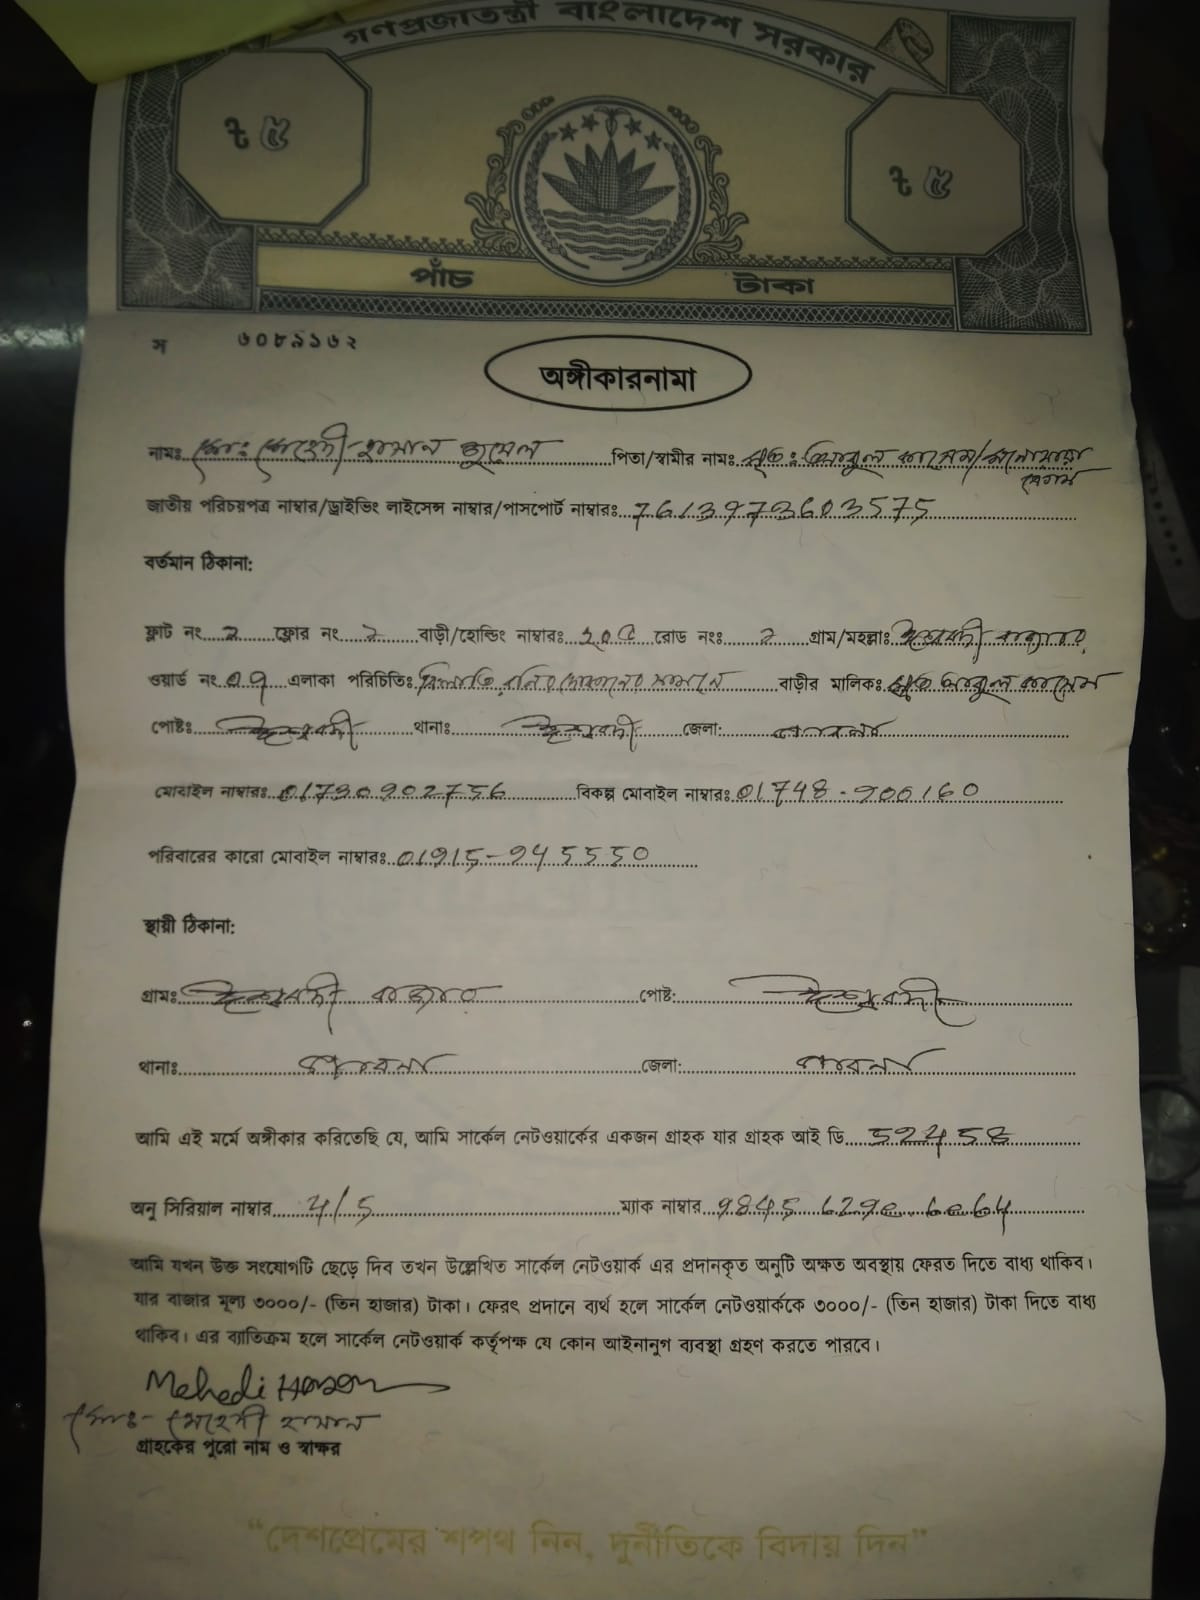 গণপ্রজাতন্ত্রী বাংলাদেশ সরকার
৳ ৫
৳ ৫
পাঁচ টাকা
স ৬০৮৯১৬২
অঙ্গীকারনামা
নামঃ মোঃ মেহেদী হাসান জুয়েল পিতা/স্বামীর নামঃ মৃতঃ আবুল কাসেম/মনোয়ারা
বেগম
জাতীয় পরিচয়পত্র নাম্বার/ড্রাইভিং লাইসেন্স নাম্বার/পাসপোর্ট নাম্বারঃ 7613973603575
বর্তমান ঠিকানা:
ফ্লাট নং ২ ফ্লোর নং ২ বাড়ী/হোল্ডিং নাম্বারঃ রোড নংঃ ২ গ্রাম/মহল্লাঃ ঈশ্বরদী বাজার
ওয়ার্ড নং ০৭ এলাকা পরিচিতিঃ দোকানের সামনে বাড়ীর মালিকঃ মৃত আবুল কাসেম
পোষ্টঃ ঈশ্বরদী থানাঃ ঈশ্বরদী জেলা: পাবনা
মোবাইল নাম্বারঃ 01730902756 বিকল্প মোবাইল নাম্বারঃ 01748-900160
পরিবারের কারো মোবাইল নাম্বারঃ 01915-945550
স্থায়ী ঠিকানা:
গ্রামঃ ঈশ্বরদী বাজার পোষ্ট: ঈশ্বরদী
থানাঃ পাবনা জেলা: পাবনা
আমি এই মর্মে অঙ্গীকার করিতেছি যে, আমি সার্কেল নেটওয়ার্কের একজন গ্রাহক যার গ্রাহক আই ডি 52458
অনু সিরিয়াল নাম্বার 4/5 ম্যাক নাম্বার 9845 6290 6064
আমি যখন উক্ত সংযোগটি ছেড়ে দিব তখন উল্লেখিত সার্কেল নেটওয়ার্ক এর প্রদানকৃত অনুটি অক্ষত অবস্থায় ফেরত দিতে বাধ্য থাকিব।
যার বাজার মূল্য ৩০০০/- (তিন হাজার) টাকা। ফেরৎ প্রদানে ব্যর্থ হলে সার্কেল নেটওয়ার্ককে ৩০০০/- (তিন হাজার) টাকা দিতে বাধ্য
থাকিব। এর ব্যাতিক্রম হলে সার্কেল নেটওয়ার্ক কর্তৃপক্ষ যে কোন আইনানুগ ব্যবস্থা গ্রহণ করতে পারবে।
Mehedi Hasan
মোঃ- মেহেদী হাসান
গ্রাহকের পুরো নাম ও স্বাক্ষর
“দেশপ্রেমের শপথ নিন, দুর্নীতিকে বিদায় দিন”